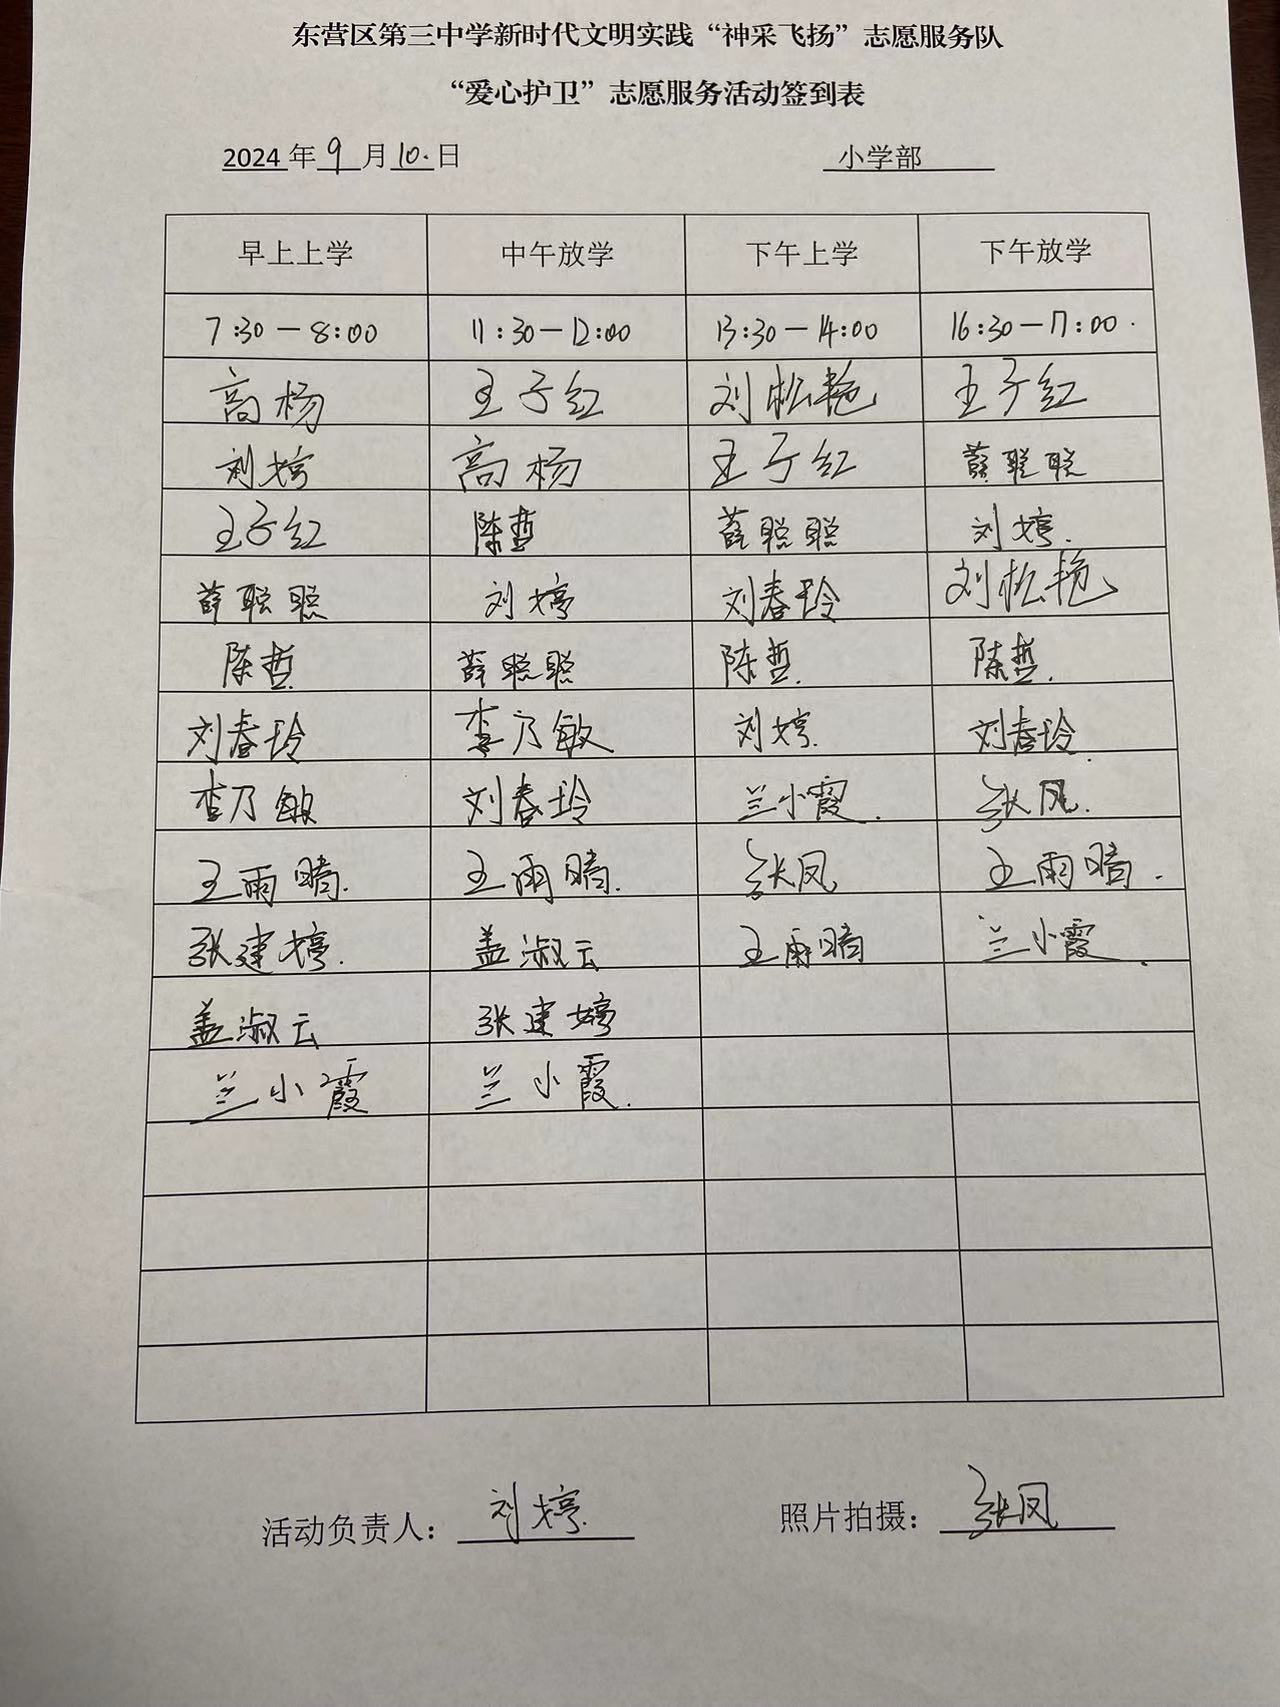 东营区第三中学新时代文明实践“神采飞扬”志愿服务队
“爱心护卫”志愿服务活动签到表
2024年9月10.日 小学部
早上上学 中午放学 下午上学 下午放学
7:30-8:00 11:30-12:00 13:30-14:00 16:30-17:00.
高杨 王子红 刘松艳 王子红
刘婷 高杨 王子红 薛聪聪
王子红 陈哲 薛聪聪 刘婷.
薛聪聪 刘婷 刘春玲 刘松艳
陈哲. 薛聪聪 陈哲. 陈哲.
刘春玲 李乃敏 刘婷. 刘春玲.
李乃敏 刘春玲 兰小霞. 张凤.
王雨晴. 王雨晴. 张凤 王雨晴.
张建婷. 盖淑云 王雨晴 兰小霞.
盖淑云 张建婷
兰小霞 兰小霞.
活动负责人：刘婷. 照片拍摄：张凤